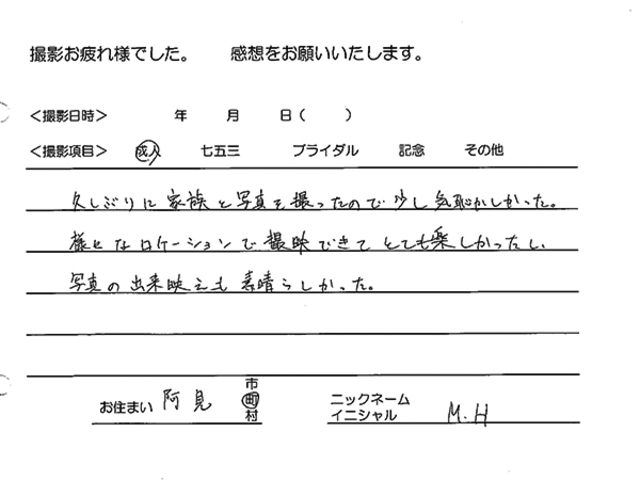 撮影お疲れ様でした。 感想をお願いいたします。
<撮影日時> 年 月 日( )
<撮影項目> 成人 七五三 ブライダル 記念 その他
久しぶりに家族と写真を撮ったので少し気恥かしかった。
様々なロケーションで撮映できてとても楽しかったし、
写真の出来映えも素晴らしかった。
お住まい 阿見 市 町 村
ニックネーム イニシャル M.H